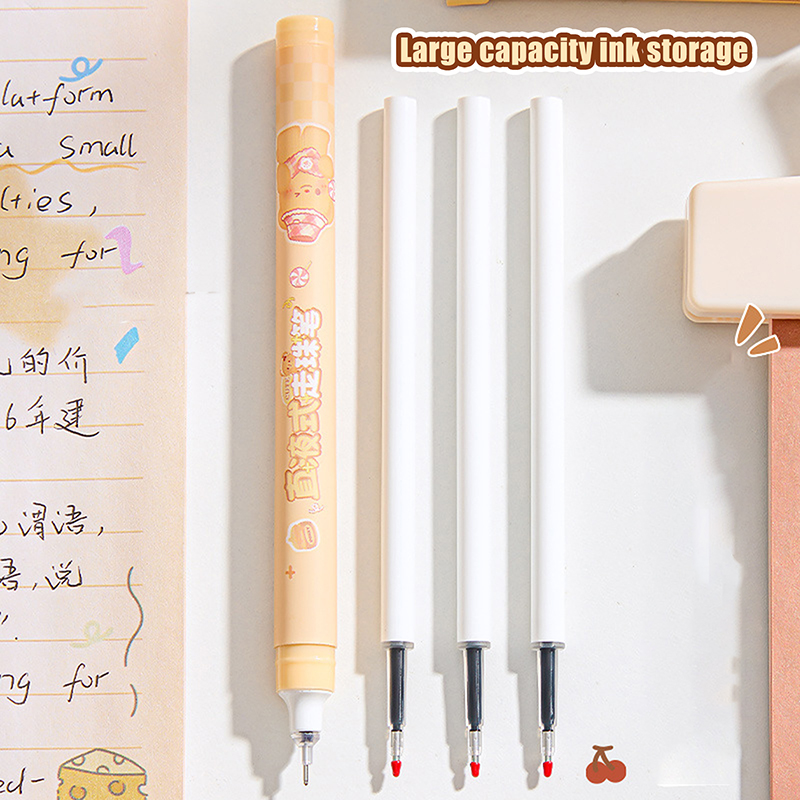 Large capacity ink storage
latform
a small
lties,
ng for
的价
6年建
谓语,
语,说
ng for
ed-
直液式走珠笔